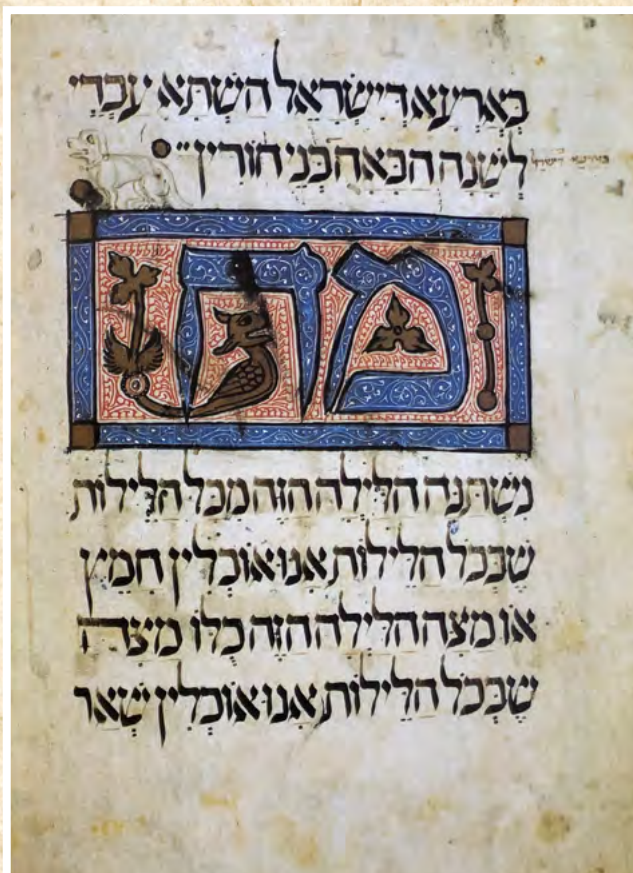 בְּאַרְעָא דְיִשְׂרָאֵל הַשַׁתָּא עַבְדֵי
לְשָׁנָה הַבָּאָה בְּנֵי חוֹרִין
מה
נִשְׁתַּנָּה הַלַּיְלָה הַזֶּה מִכָּל הַלֵּילוֹת
שֶׁבְּכָל הַלֵּילוֹת אָנוּ אוֹכְלִין חָמֵץ
אוֹ מַצָּה הַלַּיְלָה הַזֶּה כֻּלּוֹ מַצָּה
שֶׁבְּכָל הַלֵּילוֹת אָנוּ אוֹכְלִין שְׁאָר